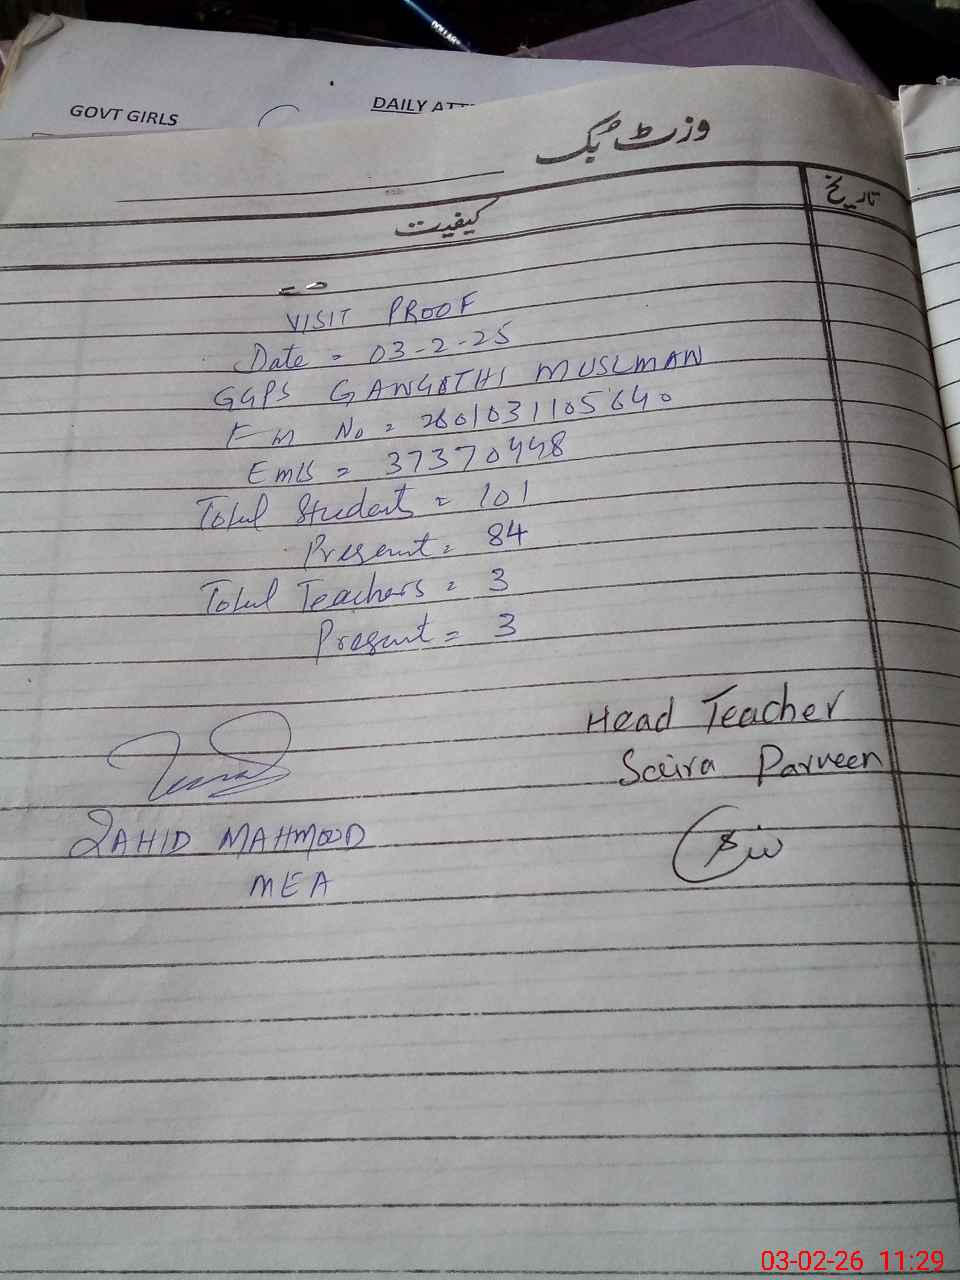 DOLLAR
GOVT GIRLS
DAILY ATT
وزٹ بک
تاریخ
کیفیت
VISIT PROOF
Date = 03-2-25
GGPS GANGOTHI MUSLMAN
Fm No = 2601031105640
Emis = 37370448
Total Students = 101
Present = 84
Total Teachers = 3
Present = 3
Head Teacher
Saira Parveen
ZAHID MAHMOOD
MEA
03-02-26 11:29